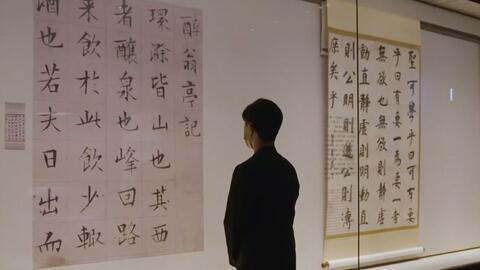 聖可學乎曰可有要
乎曰有要一為要一者
無欲也無欲則靜虛
動直靜虛則明動直
則公明則通公則溥
庶矣乎
醉翁亭記
環滁皆山也其西
者釀泉也峰回路
來飲於此飲少輒
酒也若夫日出而